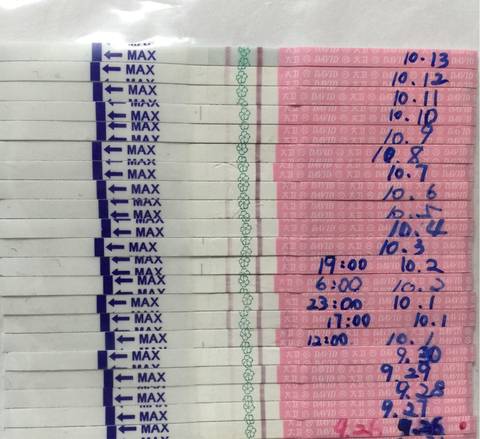 MAX 10.13
MAX 10.12
MAX 10.11
MAX 10.10
MAX 10.9
MAX 10.8
MAX 10.7
MAX 10.6
MAX 10.5
MAX 10.4
MAX 10.3
MAX 19:00 10.2
MAX 6:00 10.2
MAX 23:00 10.1
MAX 17:00 10.1
MAX 12:00 10.1
MAX 9.30
MAX 9.29
MAX 9.28
MAX 9.27
MAX 9.26 9.26